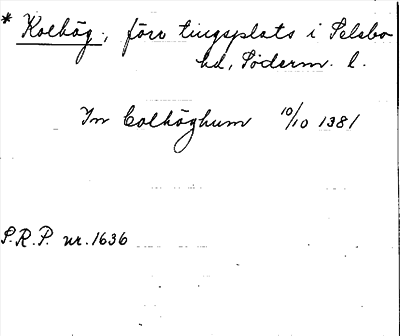 * Kolhög, förr tingsplats i Selebo
hd, Söderm. l.
In Colhöghum 10/10 1381
S.R.P. nr. 1636